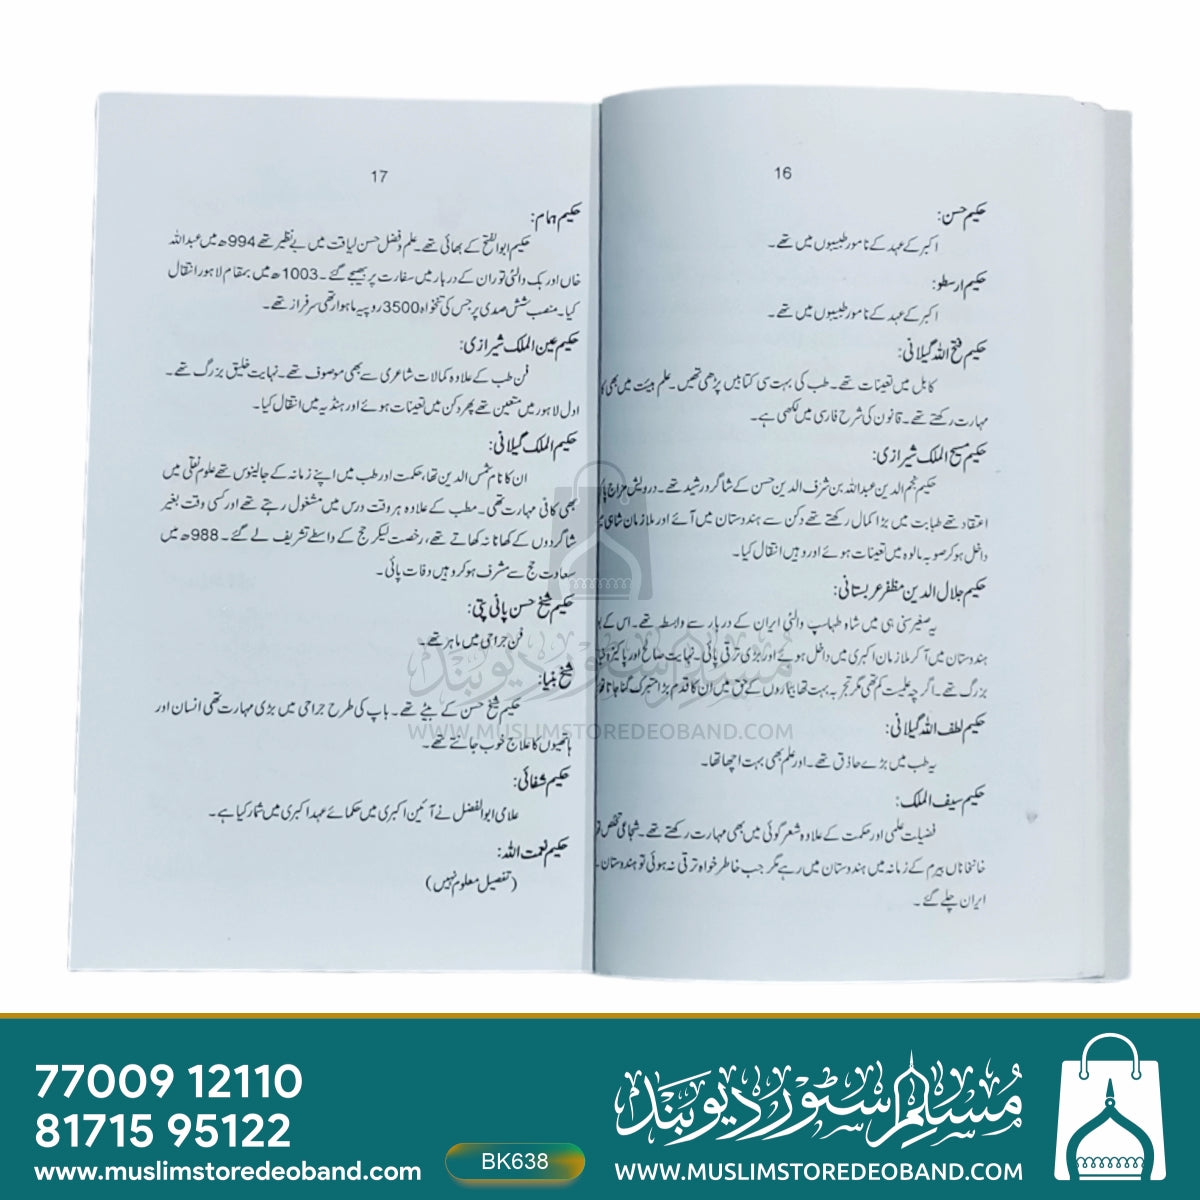 16
حکیم حسن:
اکبر کے عہد کے نامور طبیبوں میں تھے۔
حکیم ارسطو:
اکبر کے عہد کے نامور طبیبوں میں تھے۔
حکیم فتح اللہ گیلانی:
کابل میں تعینات تھے۔ طب کی بہت سی کتابیں پڑھی تھیں۔ علم ہیئت میں بھی
مہارت رکھتے تھے۔ قانون کی شرح فارسی میں لکھی ہے۔
حکیم مسیح الملک شیرازی:
حکیم نجم الدین عبداللہ بن شرف الدین حسن کے شاگرد رشید تھے۔ درویش مزاج
اعتقاد تھے طبابت میں بڑا کمال رکھتے تھے دکن سے ہندوستان میں آئے اور ملازمان شاہی
داخل ہو کر صوبہ مالوہ میں تعینات ہوئے اور وہیں انتقال کیا۔
حکیم جلال الدین مظفر عربستانی:
یہ صغیر سنی ہی میں شاہ طہماسپ والئی ایران کے دربار سے وابستہ تھے۔ اس کے
ہندوستان میں آ کر ملازمان اکبری میں داخل ہوئے اور بڑی ترقی پائی۔ نہایت صالح اور پاکیزہ
بزرگ تھے۔ اگرچہ علمیت کم تھی مگر تجربہ بہت تھا بیماروں کے حق میں ان کا قدم بڑا متبرک گنا جاتا
حکیم لطف اللہ گیلانی:
یہ طب میں بڑے حاذق تھے۔ اور علم بھی بہت اچھا تھا۔
حکیم سیف الملک:
فضیلت علمی اور حکمت کے علاوہ شعر گوئی میں بھی مہارت رکھتے تھے۔ شجاعی تخلص
خانخاناں بیرم کے زمانہ میں ہندوستان میں رہے مگر جب خاطر خواہ ترقی نہ ہوئی تو ہندوستان
ایران چلے گئے۔
17
حکیم ہمام:
حکیم ابوالفتح کے بھائی تھے۔ علم و فضل حسن لیاقت میں بے نظیر تھے 994ھ میں عبداللہ
خاں اوربک والئی توران کے دربار میں سفارت پر بھیجے گئے۔ 1003ھ میں بمقام لاہور انتقال
کیا۔ منصب شش صدی پر جس کی تنخواہ 3500 روپیہ ماہوار تھی سرفراز تھے۔
حکیم عین الملک شیرازی:
فن طب کے علاوہ کمالات شاعری سے بھی موصوف تھے۔ نہایت خلیق بزرگ تھے۔
اول لاہور میں متعین تھے پھر دکن میں تعینات ہوئے اور ہنڈیہ میں انتقال کیا۔
حکیم الملک گیلانی:
ان کا نام شمس الدین تھا، حکمت اور طب میں اپنے زمانہ کے جالینوس تھے علوم نقلی میں
بھی کافی مہارت تھی۔ مطب کے علاوہ ہر وقت درس میں مشغول رہتے تھے اور کسی وقت بغیر
شاگردوں کے کھانا نہ کھاتے تھے، رخصت لیکر حج کے واسطے تشریف لے گئے۔ 988ھ میں
سعادت حج سے مشرف ہو کر وہیں وفات پائی۔
حکیم شیخ حسن پانی پتی:
فن جراحی میں ماہر تھے۔
شیخ بنیا:
حکیم شیخ حسن کے بیٹے تھے۔ باپ کی طرح جراحی میں بڑی مہارت تھی انسان اور
ہاتھیوں کا علاج خوب جانتے تھے۔
حکیم شفائی:
علامی ابوالفضل نے آئین اکبری میں حکمائے عہد اکبری میں شمار کیا ہے۔
حکیم نعمت اللہ:
(تفصیل معلوم نہیں)
مسلم سٹور دیوبند
WWW.MUSLIMSTOREDEOBAND.COM
77009 12110
81715 95122
www.muslimstoredeoband.com
BK638
مسلم سٹور دیوبند
WWW.MUSLIMSTOREDEOBAND.COM